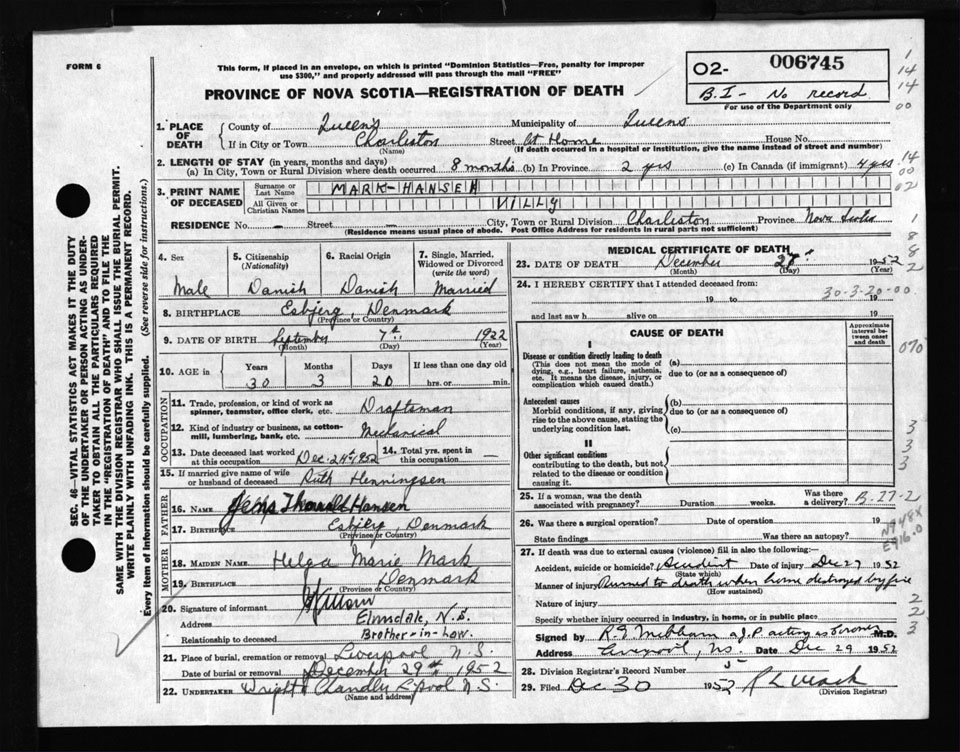 FORM 6
This form, if placed in an envelope, on which is printed "Dominion Statistics—Free, penalty for improper
use $300," and properly addressed will pass through the mail "FREE"
O2- 006745
B.I - No record
For use of the Department only
PROVINCE OF NOVA SCOTIA—REGISTRATION OF DEATH
1. PLACE OF DEATH
County of Queens Municipality of Queens
If in City or Town Charleston (Name) Street At Home House No.
(If death occurred in a hospital or institution, give the name instead of street and number)
2. LENGTH OF STAY (in years, months and days)
(a) In City, Town or Rural Division where death occurred 8 months (b) In Province 2 yrs (c) In Canada (if immigrant) 4 yrs
3. PRINT NAME OF DECEASED
Surname or Last Name MARK-HANSEN
All Given or Christian Names VILLY
RESIDENCE No. – Street – City, Town or Rural Division Charleston Province Nova Scotia
(Residence means usual place of abode. Post Office Address for residents in rural parts not sufficient)
4. Sex Male
5. Citizenship (Nationality) Danish
6. Racial Origin Danish
7. Single, Married, Widowed or Divorced (write the word) Married
8. BIRTHPLACE Esbjerg, Denmark
(Province or Country)
9. DATE OF BIRTH September 7th 1922
(Month) (Day) (Year)
10. AGE in Years 30 Months 3 Days 20 If less than one day old hrs. or min.
OCCUPATION
11. Trade, profession, or kind of work as spinner, teamster, office clerk, etc. Draftsman
12. Kind of industry or business, as cotton-mill, lumbering, bank, etc. Mechanical
13. Date deceased last worked at this occupation Dec. 24th 1952
14. Total yrs. spent in this occupation —
15. If married give name of wife or husband of deceased Ruth Henningsen
FATHER
16. NAME Jens Thorvald Hansen
17. BIRTHPLACE Esbjerg, Denmark
(Province or Country)
MOTHER
18. MAIDEN NAME Helga Marie Mark
19. BIRTHPLACE Denmark
(Province or Country)
20. Signature of informant
Address Elmsdale, N.S.
Relationship to deceased Brother-in-Law.
21. Place of burial, cremation or removal Liverpool N.S.
Date of burial or removal December 29th 1952
22. UNDERTAKER Wright & Chandler L'pool N.S.
(Name and address)
MEDICAL CERTIFICATE OF DEATH
23. DATE OF DEATH December 27th 1952
(Month) (Day) (Year)
24. I HEREBY CERTIFY that I attended deceased from:
30-3-20-00
19 to 19
and last saw h alive on 19
CAUSE OF DEATH
Approximate interval between onset and death
I
Disease or condition directly leading to death
(This does not mean the mode of dying, e.g., heart failure, asthenia, etc. It means the disease, injury, or complication which caused death.)
(a)
due to (or as a consequence of)
Antecedent causes
Morbid conditions, if any, giving rise to the above cause, stating the underlying condition last.
(b)
due to (or as a consequence of)
(c)
II
Other significant conditions
contributing to the death, but not related to the disease or condition causing it.
25. If a woman, was the death associated with pregnancy? Duration weeks. Was there a delivery? B-27-2
26. Was there a surgical operation? Date of operation 19
State findings Was there an autopsy?
N948X
E916.0
27. If death was due to external causes (violence) fill in also the following:
Accident, suicide or homicide? Accident Date of injury Dec 27 1952
(State which)
Manner of injury Burned to death when home destroyed by fire
(How sustained)
Nature of injury
Specify whether injury occurred in industry, in home, or in public place
Signed by J.P acting as Coroner M.D.
Address Liverpool, NS. Date Dec 29 1952
28. Division Registrar's Record Number 5
29. Filed Dec 30 1952
(Division Registrar)
SEC. 46—VITAL STATISTICS ACT MAKES IT THE DUTY
OF THE UNDERTAKER OR PERSON ACTING AS UNDER-
TAKER TO OBTAIN ALL THE PARTICULARS REQUIRED
IN THE "REGISTRATION OF DEATH" AND TO FILE THE
SAME WITH THE DIVISION REGISTRAR WHO SHALL ISSUE THE BURIAL PERMIT.
WRITE PLAINLY WITH UNFADING INK. THIS IS A PERMANENT RECORD.
Every item of Information should be carefully supplied. (See reverse side for instructions.)
1
14
14
00
14
00
02
1
8
8
2
070
3
3
3
2
2
3